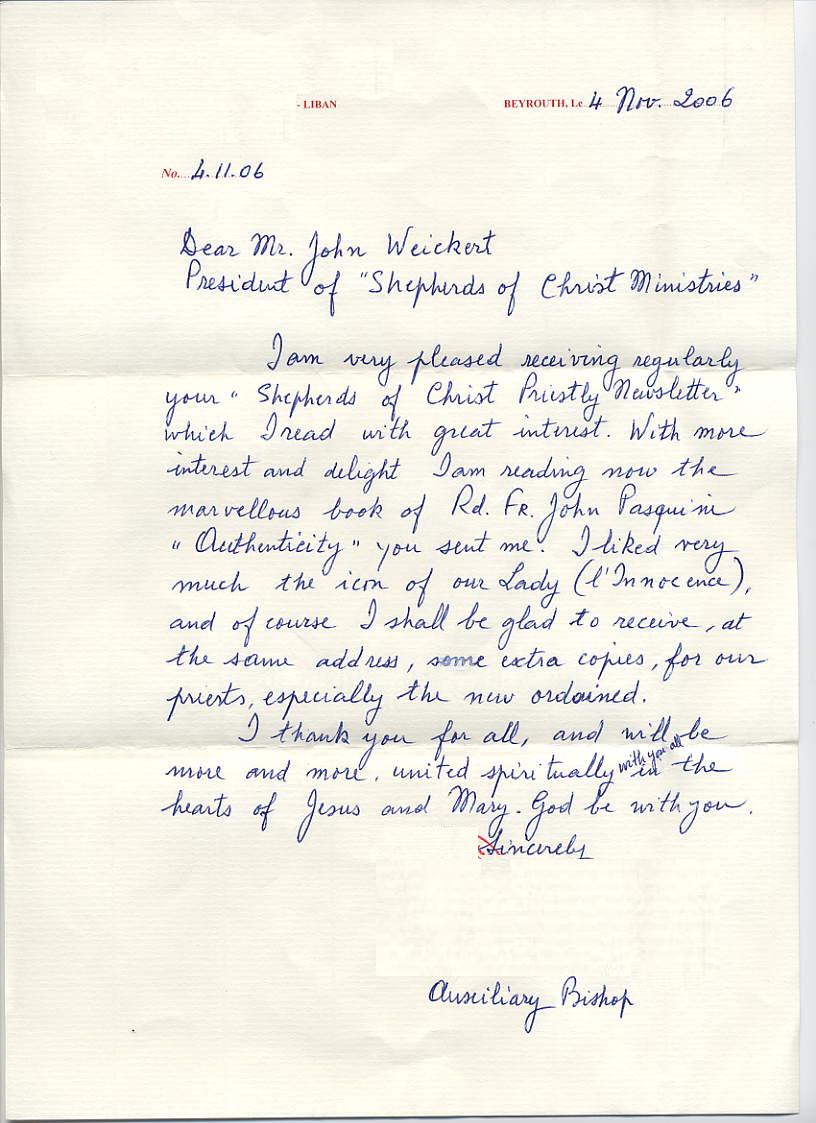 - LIBAN
BEYROUTH, Le 4 Nov. 2006
No. 4.11.06
Dear Mr. John Weickert
President of "Shepherds of Christ Ministries"
I am very pleased receiving regularly
your "Shepherds of Christ Priestly Newsletter"
which I read with great interest. With more
interest and delight I am reading now the
marvellous book of Rd. Fr. John Pasquini
"Authenticity" you sent me. I liked very
much the icon of our Lady (l'Innocence),
and of course I shall be glad to receive, at
the same address, some extra copies, for our
priests, especially the new ordained.
I thank you for all, and will be
more and more, united spiritually with you all in the
hearts of Jesus and Mary. God be with you.
Sincerely
Auxiliary Bishop